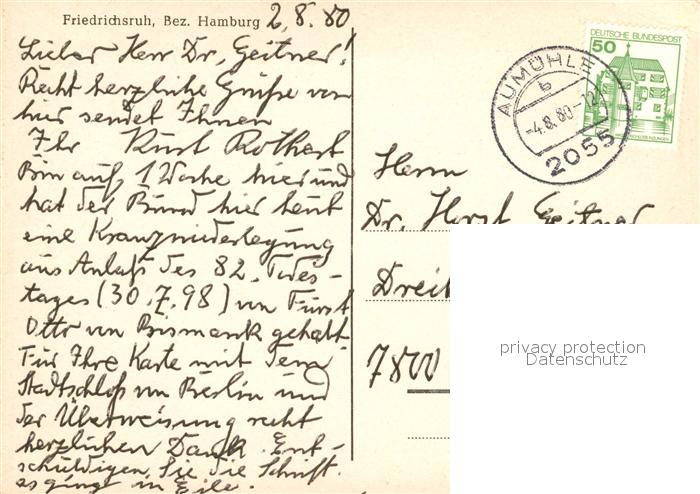 Friedrichsruh, Bez. Hamburg 2.8.80
Lieber Herr Dr. Geitner!
Recht herzliche Grüße von
hier sendet Ihnen
Ihr Kurt Rothert
Bin auf 1 Woche hier und
hat der Bund hier heut
eine Kranzniederlegung
aus Anlaß des 82. Todes-
tages (30.7.98) von Fürst
Otto von Bismarck gehabt.
Für Ihre Karte mit dem
Stadtschloß von Berlin und
der Überweisung recht
herzlichen Dank. Ent-
schuldigen Sie die Schrift.
es ging in Eile.
DEUTSCHE BUNDESPOST
50
WASSERSCHLOSS INZLINGEN
AUMÜHLE
b
-4.8.80-12
2055
Herrn
Dr. Horst Geitner
Dreik
7800
privacy protection
Datenschutz